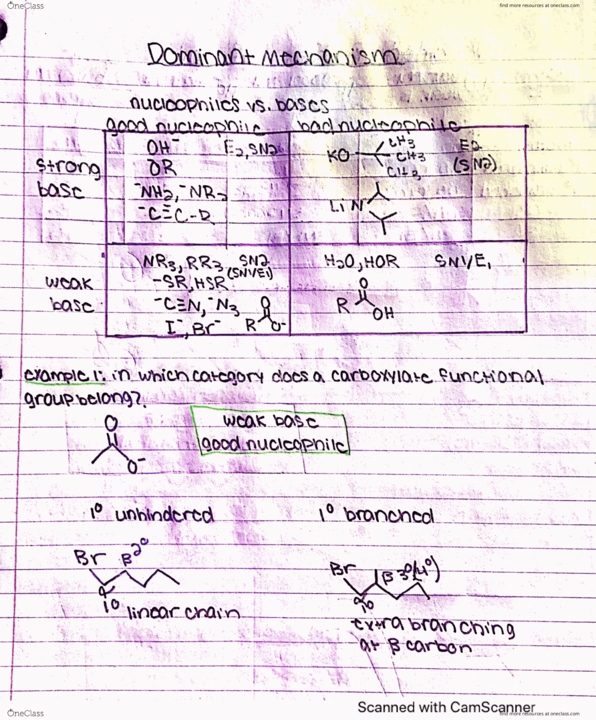 OneClass
find more resources at oneclass.com
Dominant Mechanism
nucleophiles vs. bases
good nucleophile bad nucleophile
strong base
OH⁻ E2, SN2
OR
⁻NH2, ⁻NR2
⁻C≡C-R
KO CH3 CH3 CH3 E2 (SN2)
Li N
weak base
NR3, RR3 SN2 (SN1/E1)
⁻SR, HSR
⁻C≡N, ⁻N3
I⁻, Br⁻ R O O⁻
H2O, HOR SN1/E1
R O OH
example 1: in which category does a carboxylate functional
group belong?
O O⁻
weak base
good nucleophile
1° unhindered 1° branched
Br B 2°
1° linear chain
Br (B 3°/4°)
1°
extra branching
at β carbon
Scanned with CamScanner
OneClass
find more resources at oneclass.com